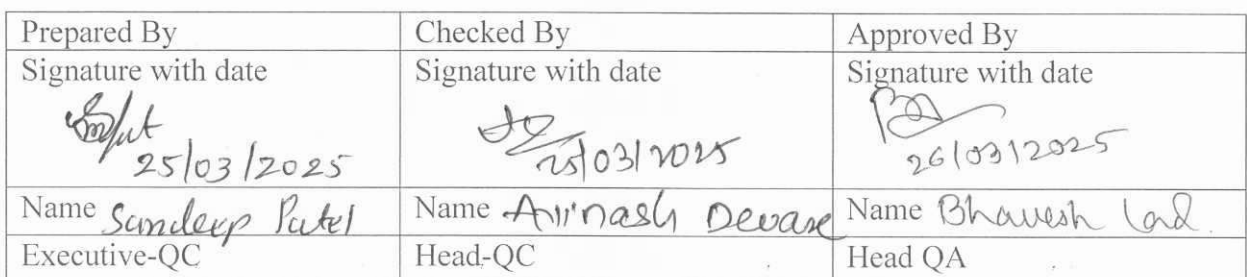 Prepared By
Checked By
Approved By
Signature with date
Signature with date
Signature with date
25/03/2025
25/03/2025
26/03/2025
Name Sandeep Patel
Name Avinash Devare
Name Bhavesh Lad.
Executive-QC
Head-QC
Head QA